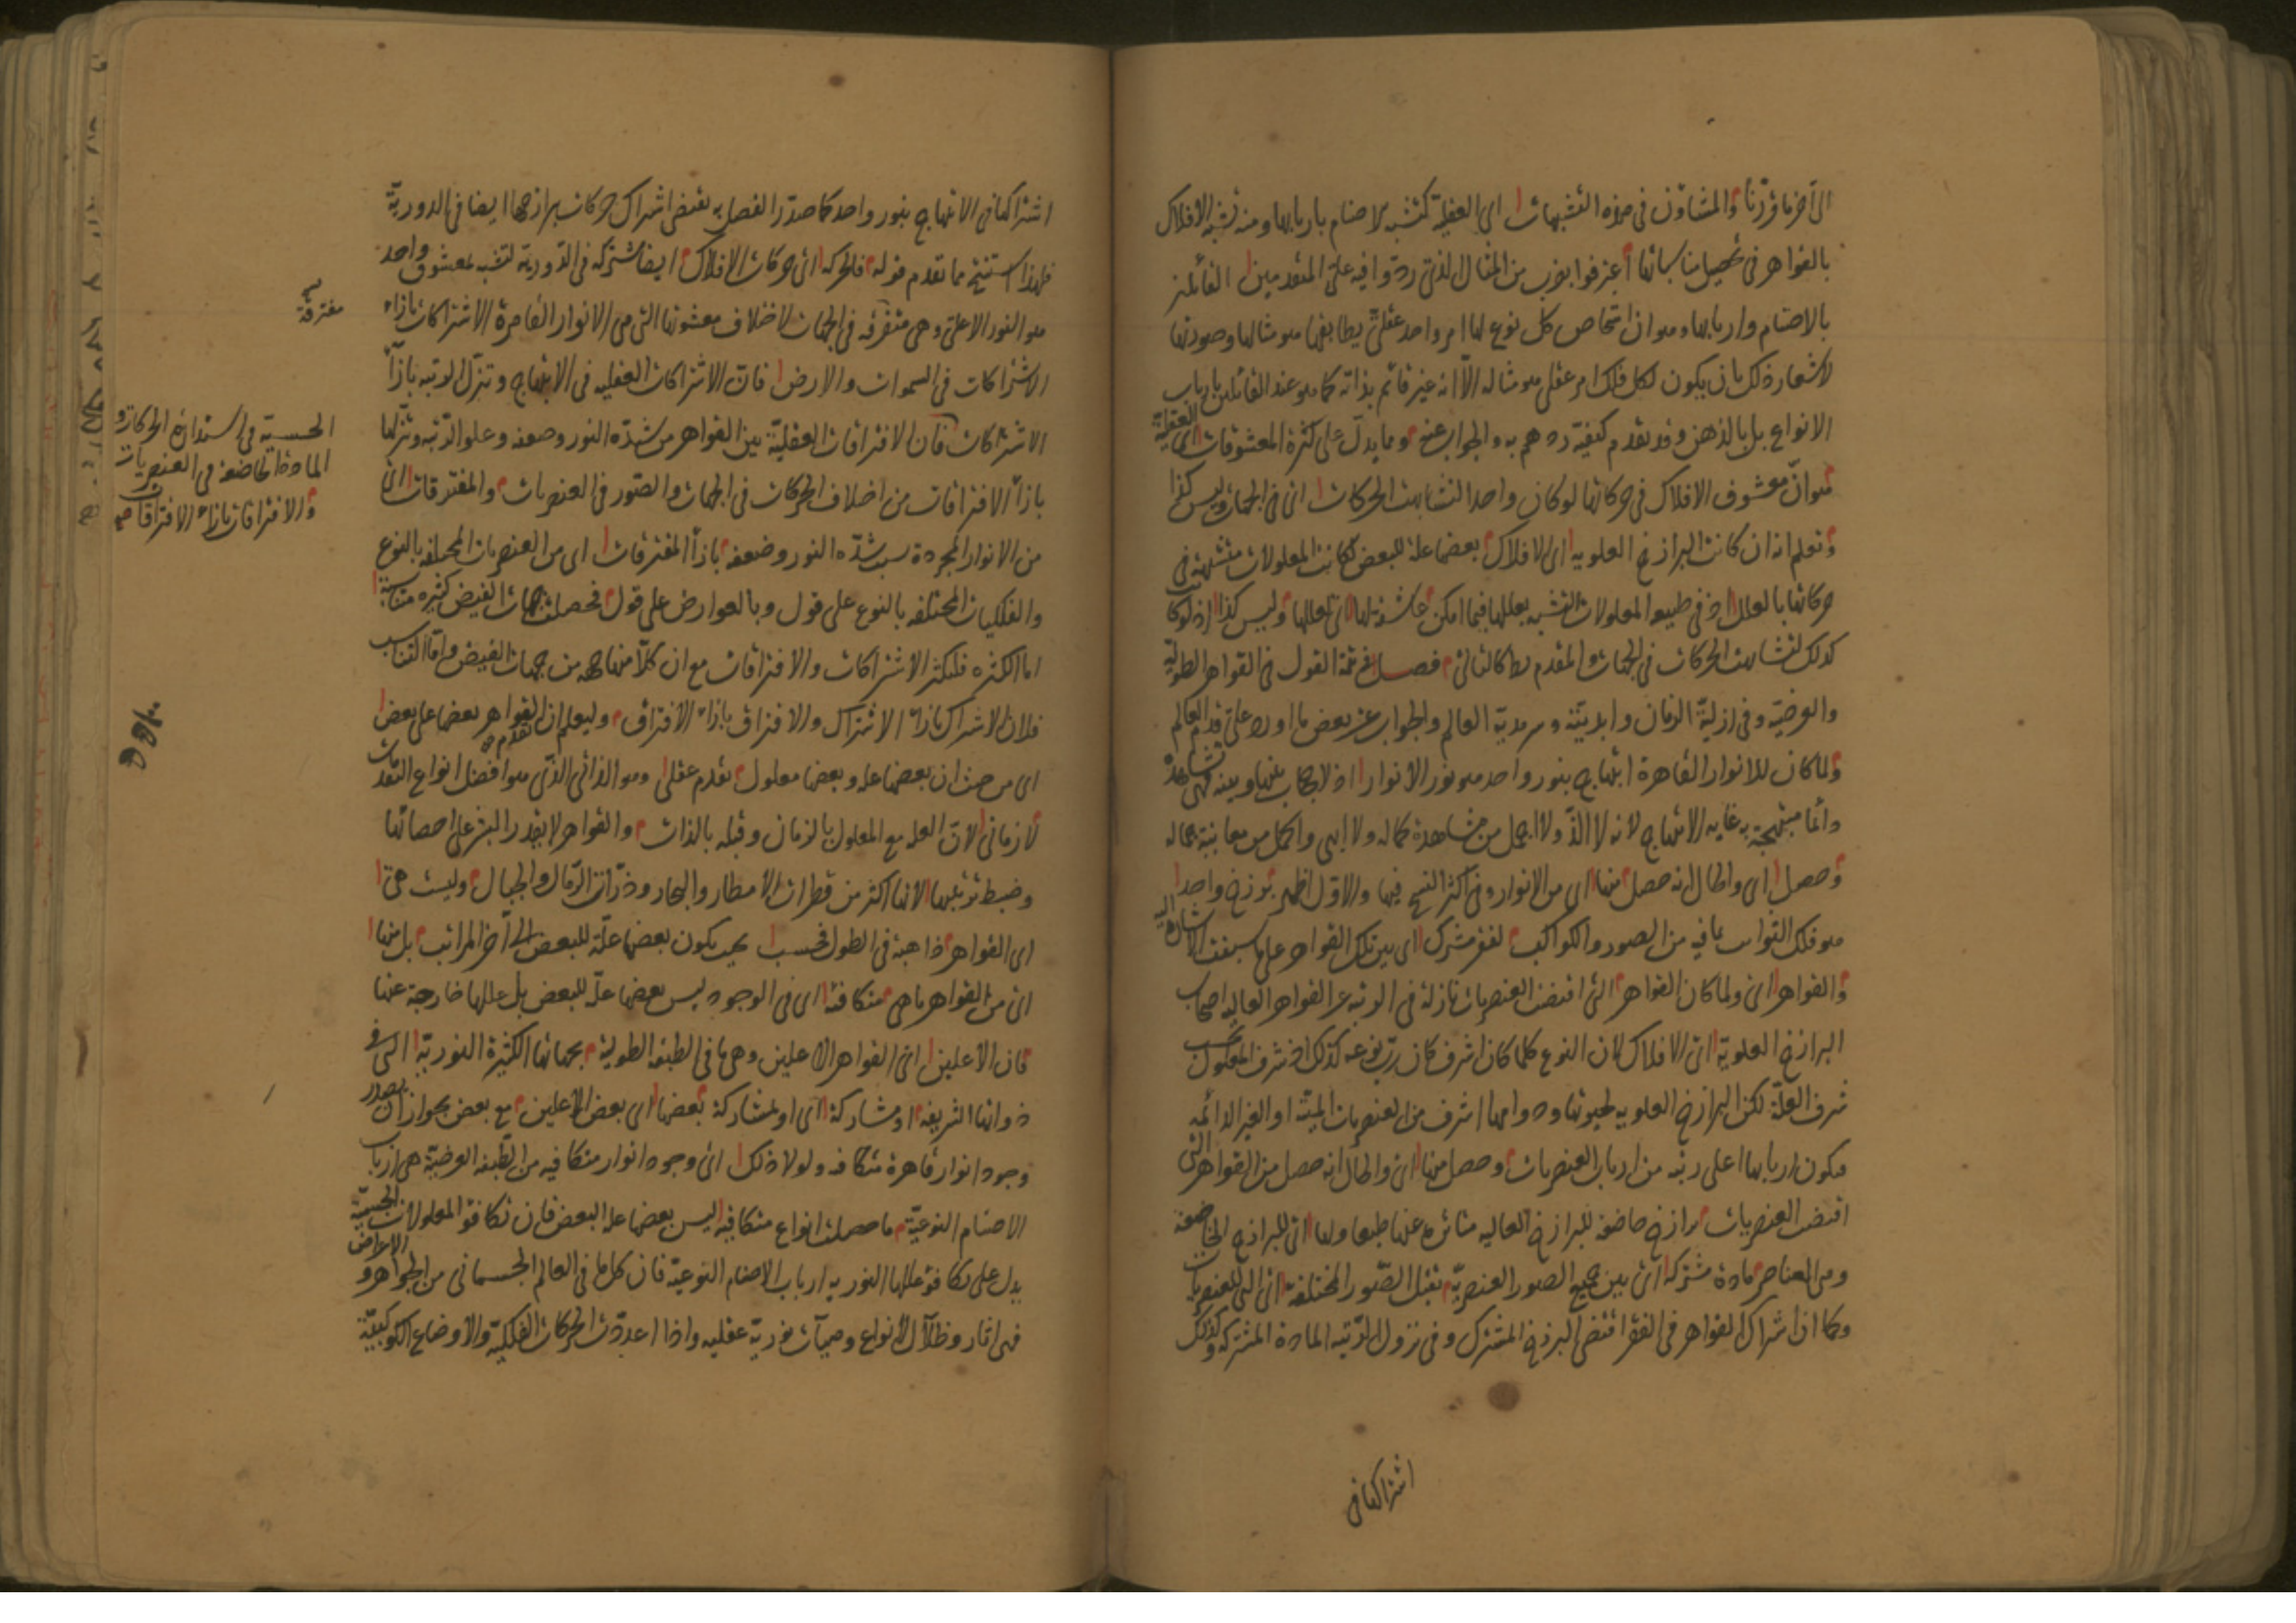 الى آخر ما قررنا والمشاؤن فى هذه التشبهات اى العقلية كتشبه الاصنام باربابها ومنه تشبه الافلاك
بالقواهر فى تحصيل مناسباتها اعترفوا بقرب من المثال الذى ردوا فيه على المتقدمين القائلين
بالاصنام واربابها وهو ان اشخاص كل نوع لها امر واحد عقلى يطابقها هو مثالها وصورتها
لاشعار ذلك بان يكون لكل فلك امر عقلى هو مثاله الا انه غير قائم بذاته كما هو عند القائلين بارباب
الانواع بل بالذهن وقد تقدم كيفية ردهم به والجواب عنه ومما يدل على كثرة المعشوقات اى العقلية
هو ان معشوق الافلاك فى حركاتها لو كان واحدا لتشابهت الحركات اى فى الجهات وليس كذا
وتعلم انه ان كانت البرازخ العلوية اى الافلاك بعضها علة للبعض لكانت المعلولات متشبهة فى
حركاتها بالعلل اذ فى طبيعة المعلولات التشبه بعللها فيما امكن عاشقة لها اى لعللها وليس كذا اذ لو كانت
كذلك لتشابهت الحركات فى الجهات والمقدم كالتالى فصل فى تتمة القول فى القواهر الطولية
والعرضية وفى ازلية الزمان وابديته وسرمدية العالم والجواب عن بعض ما اورد على قدم العالم
ولما كان للانوار القاهرة ابتهاج بنور واحد هو نور الانوار اذ لا حجاب بينها وبينه فهى تشاهده
دائما مبتهجة به غاية الابتهاج لانه لا الذ ولا اجمل من مشاهدة كماله ولا ابهى واكمل من معاينة جماله
وحصل اى والحال انه حصل منها اى من الانوار وفى اكثر النسخ فيها والاول اظهر برزخ واحد
هو فلك الثوابت بما فيه من الصور والكواكب لفقر مشترك اى بين تلك القواهر على ما سبقت الاشارة اليه
والقواهر اى ولما كان القواهر التى اقتضت العنصريات نازلة فى الرتبة عن القواهر العالية اصحاب
البرازخ العلوية اى الافلاك لان النوع كلما كان اشرف كان رب نوعه كذلك اذ شرف المعلول بحسب
شرف العلة لكن البرازخ العلوية لحيوتها ودوامها اشرف من العنصريات الميتة او الغير الدائمة
فيكون اربابها اعلى رتبة من ارباب العنصريات وحصل منها اى والحال انه حصل من القواهر التى
اقتضت العنصريات برازخ خاضعة للبرازخ العالية متاثرة عنها طبعا ولها اى للبرازخ الخاضعة
وهى العناصر مادة مشتركة اى بين جميع الصور العنصرية تقبل الصور المختلفة اى التى للعنصريات
وكما ان اشتراك القواهر فى الفقر اقتضى البرزخ المشترك وفى نزول الرتبة المادة المشتركة وكذلك
اشتراكها فى
اشتراكها فى الابتهاج بنور واحد كما صدر الفصل به يقتضى اشتراك حركات برازخها ايضا فى الدورية
فلهذا استنتج مما تقدم قوله فالحركة اى حركات الافلاك ايضا مشتركة فى الدورية لتشبه بمعشوق واحد
هو النور الاعلى وهى متفرقة فى الجهات لاختلاف معشوقها التى هى الانوار القاهرة الاشتراكات بازاء
الاشتراكات فى السموات والارض فان الاشتراكات العقلية فى الابتهاج وتنزل الرتبة بازاء
الاشتراكات فان الافتراقات العقلية بين القواهر من شدة النور وضعفه وعلو الرتبة ونزلها
بازاء الافتراقات من اختلاف الحركات فى الجهات والصور فى العنصريات والمفترقات اى
من الانوار المجردة بسبب شدة النور وضعفه بازاء المفترقات اى من العنصريات المختلفة بالنوع
والفلكيات المختلفة بالنوع على قول وبالعوارض على قول فحصلت جهات الفيض كثيرة متناسبة
اما الكثرة فلكثرة الاشتراكات والافتراقات مع ان كلا منها جهة من جهات الفيض واما التناسب
فلان الاشتراك بازاء الاشتراك والافتراق بازاء الافتراق وليعلم ان للقواهر بعضها على بعض تقدم
اى من حيث ان بعضها علة وبعضها معلول تقدم عقلى وهو الذاتى الذى هو افضل انواع التقدمات
لا زمانى لان العلة مع المعلول بالزمان وقبله بالذات والقواهر لا يقدر البشر على احصائها
وضبط ترتيبها لانها اكثر من قطرات الامطار والبحار وذرات الرمال والجبال وليست هى
اى القواهر ذاهبة فى الطول فحسب بحيث يكون بعضها علة للبعض الى آخر المراتب بل منها
اى من القواهر ما هى متكافئة اى فى الوجود ليس بعضها علة للبعض بل عللها خارجة عنها
فان الاعلين اى القواهر الاعلين وهى ما فى الطبقة الطولية بجهاتها الكثيرة النورية التى فى
ذواتها الشريفة او مشاركة اى او لمشاركة بعضها اى بعض الاعلين مع بعض يجوز ان يصدر
وجود انوار قاهرة متكافئة ولولا ذلك اى وجود انوار متكافية من الطبقة العرضية هى ارباب
الاصنام النوعية ما حصلت انواع متكافية ليس بعضها علة لبعض فان تكافؤ المعلولات الجسمية
يدل على تكافؤ عللها النورية ارباب الاصنام النوعية فان كل ما فى العالم الجسمانى من الجواهر والاعراض
فهى اثار وظلال لانواع وهيآت نورية عقلية واذا اعدت الحركات الفلكية والاوضاع الكوكبية
مفترقة
الحسية فى استدارة الحركات و
المادة الخاضعة فى العنصريات
والافتراقات بازاء الافتراقات صح